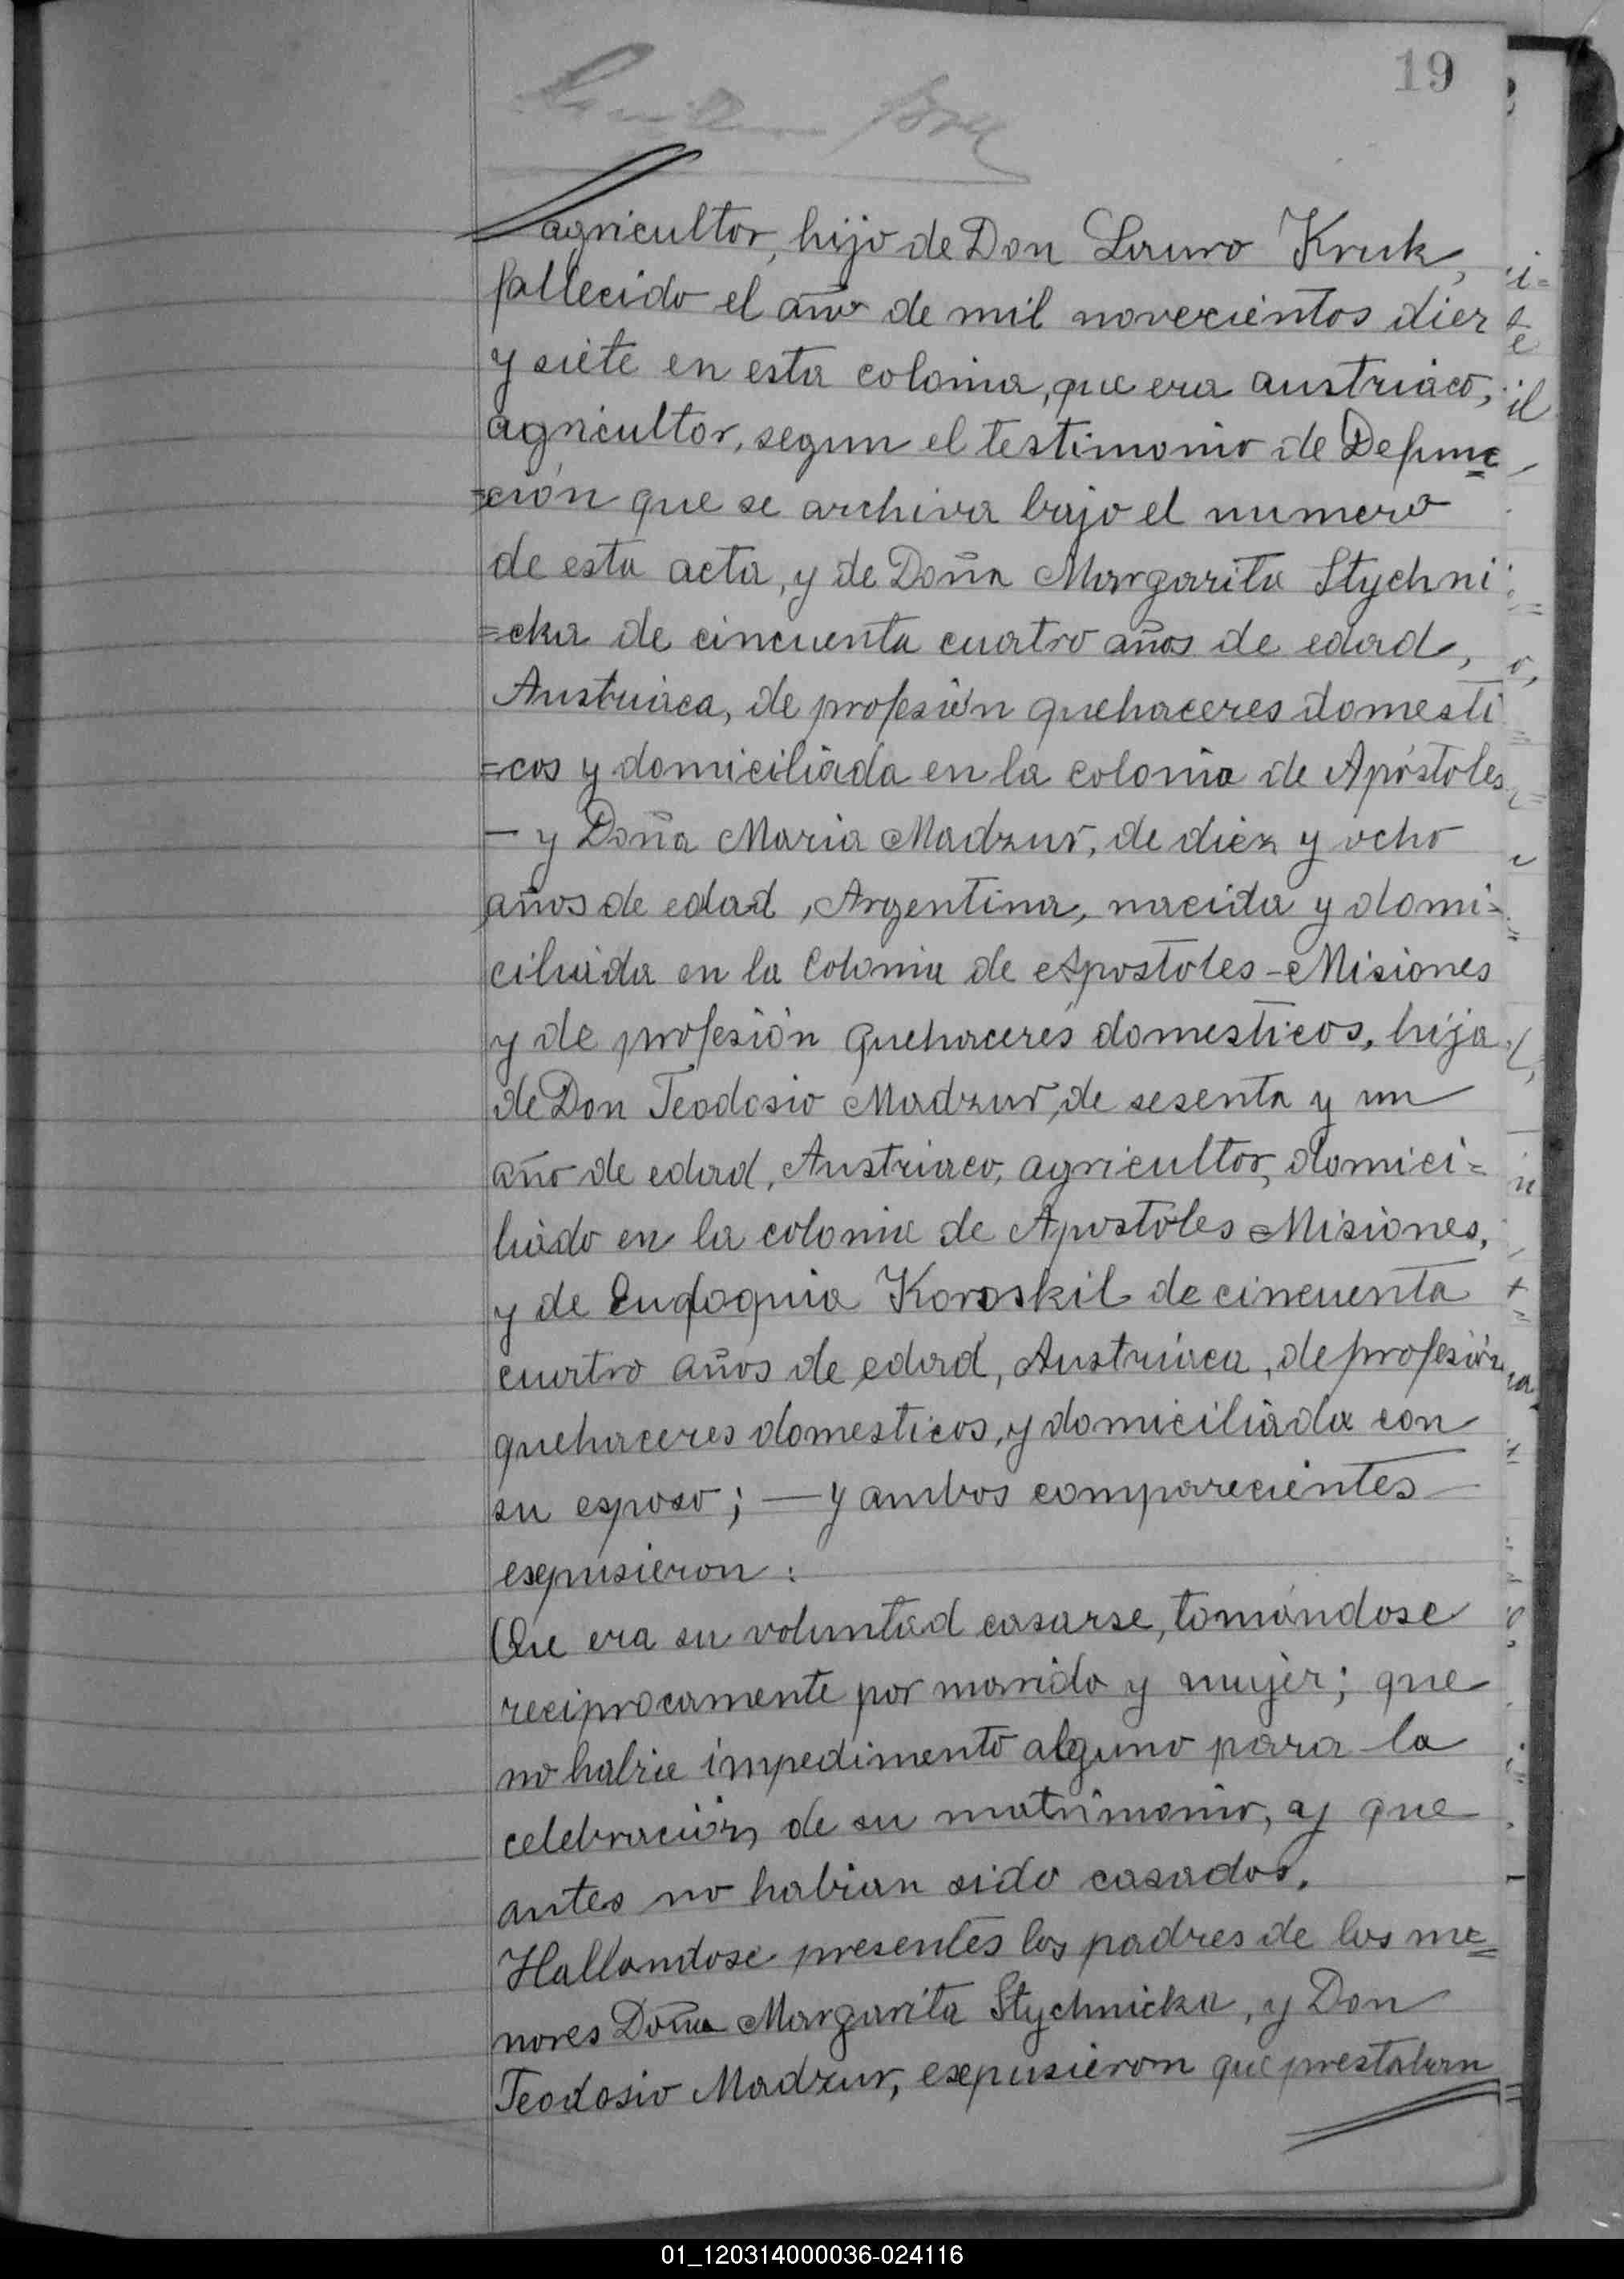 19
agricultor, hijo de Don Lauro Kruk,
fallecido el año de mil novecientos diez
y siete en esta colonia, que era austriaco,
agricultor, segun el testimonio de Defunc
=ción que se archiva bajo el numero
de esta acta, y de Doña Margarita Stychni
=cka de cincuenta cuatro años de edad,
Austriaca, de profesión quehaceres domesti
=cos y domiciliada en la colonia de Apóstoles
— y Doña Maria Madzur, de diez y ocho
años de edad, Argentina, nacida y domi-
ciliada en la Colonia de Apostoles - Misiones
y de profesión quehaceres domesticos, hija
de Don Teodosio Madzur, de sesenta y un
año de edad, Austriaco, agricultor, domici=
liado en la colonia de Apostoles Misiones,
y de Eudoquia Koroskil de cincuenta
cuatro años de edad, Austriaca, de profesión
quehaceres domesticos, y domiciliada con
su esposo; — y ambos comparecientes
expusieron:
Que era su voluntad casarse, tomándose
reciprocamente por marido y mujer; que
no habia impedimento alguno para la
celebración de su matrimonio, y que
antes no habian sido casados.
Hallandose presentes los padres de los me=
nores Doña Margarita Stychnicka, y Don
Teodosio Madzur, expusieron que prestaban
01_120314000036-024116